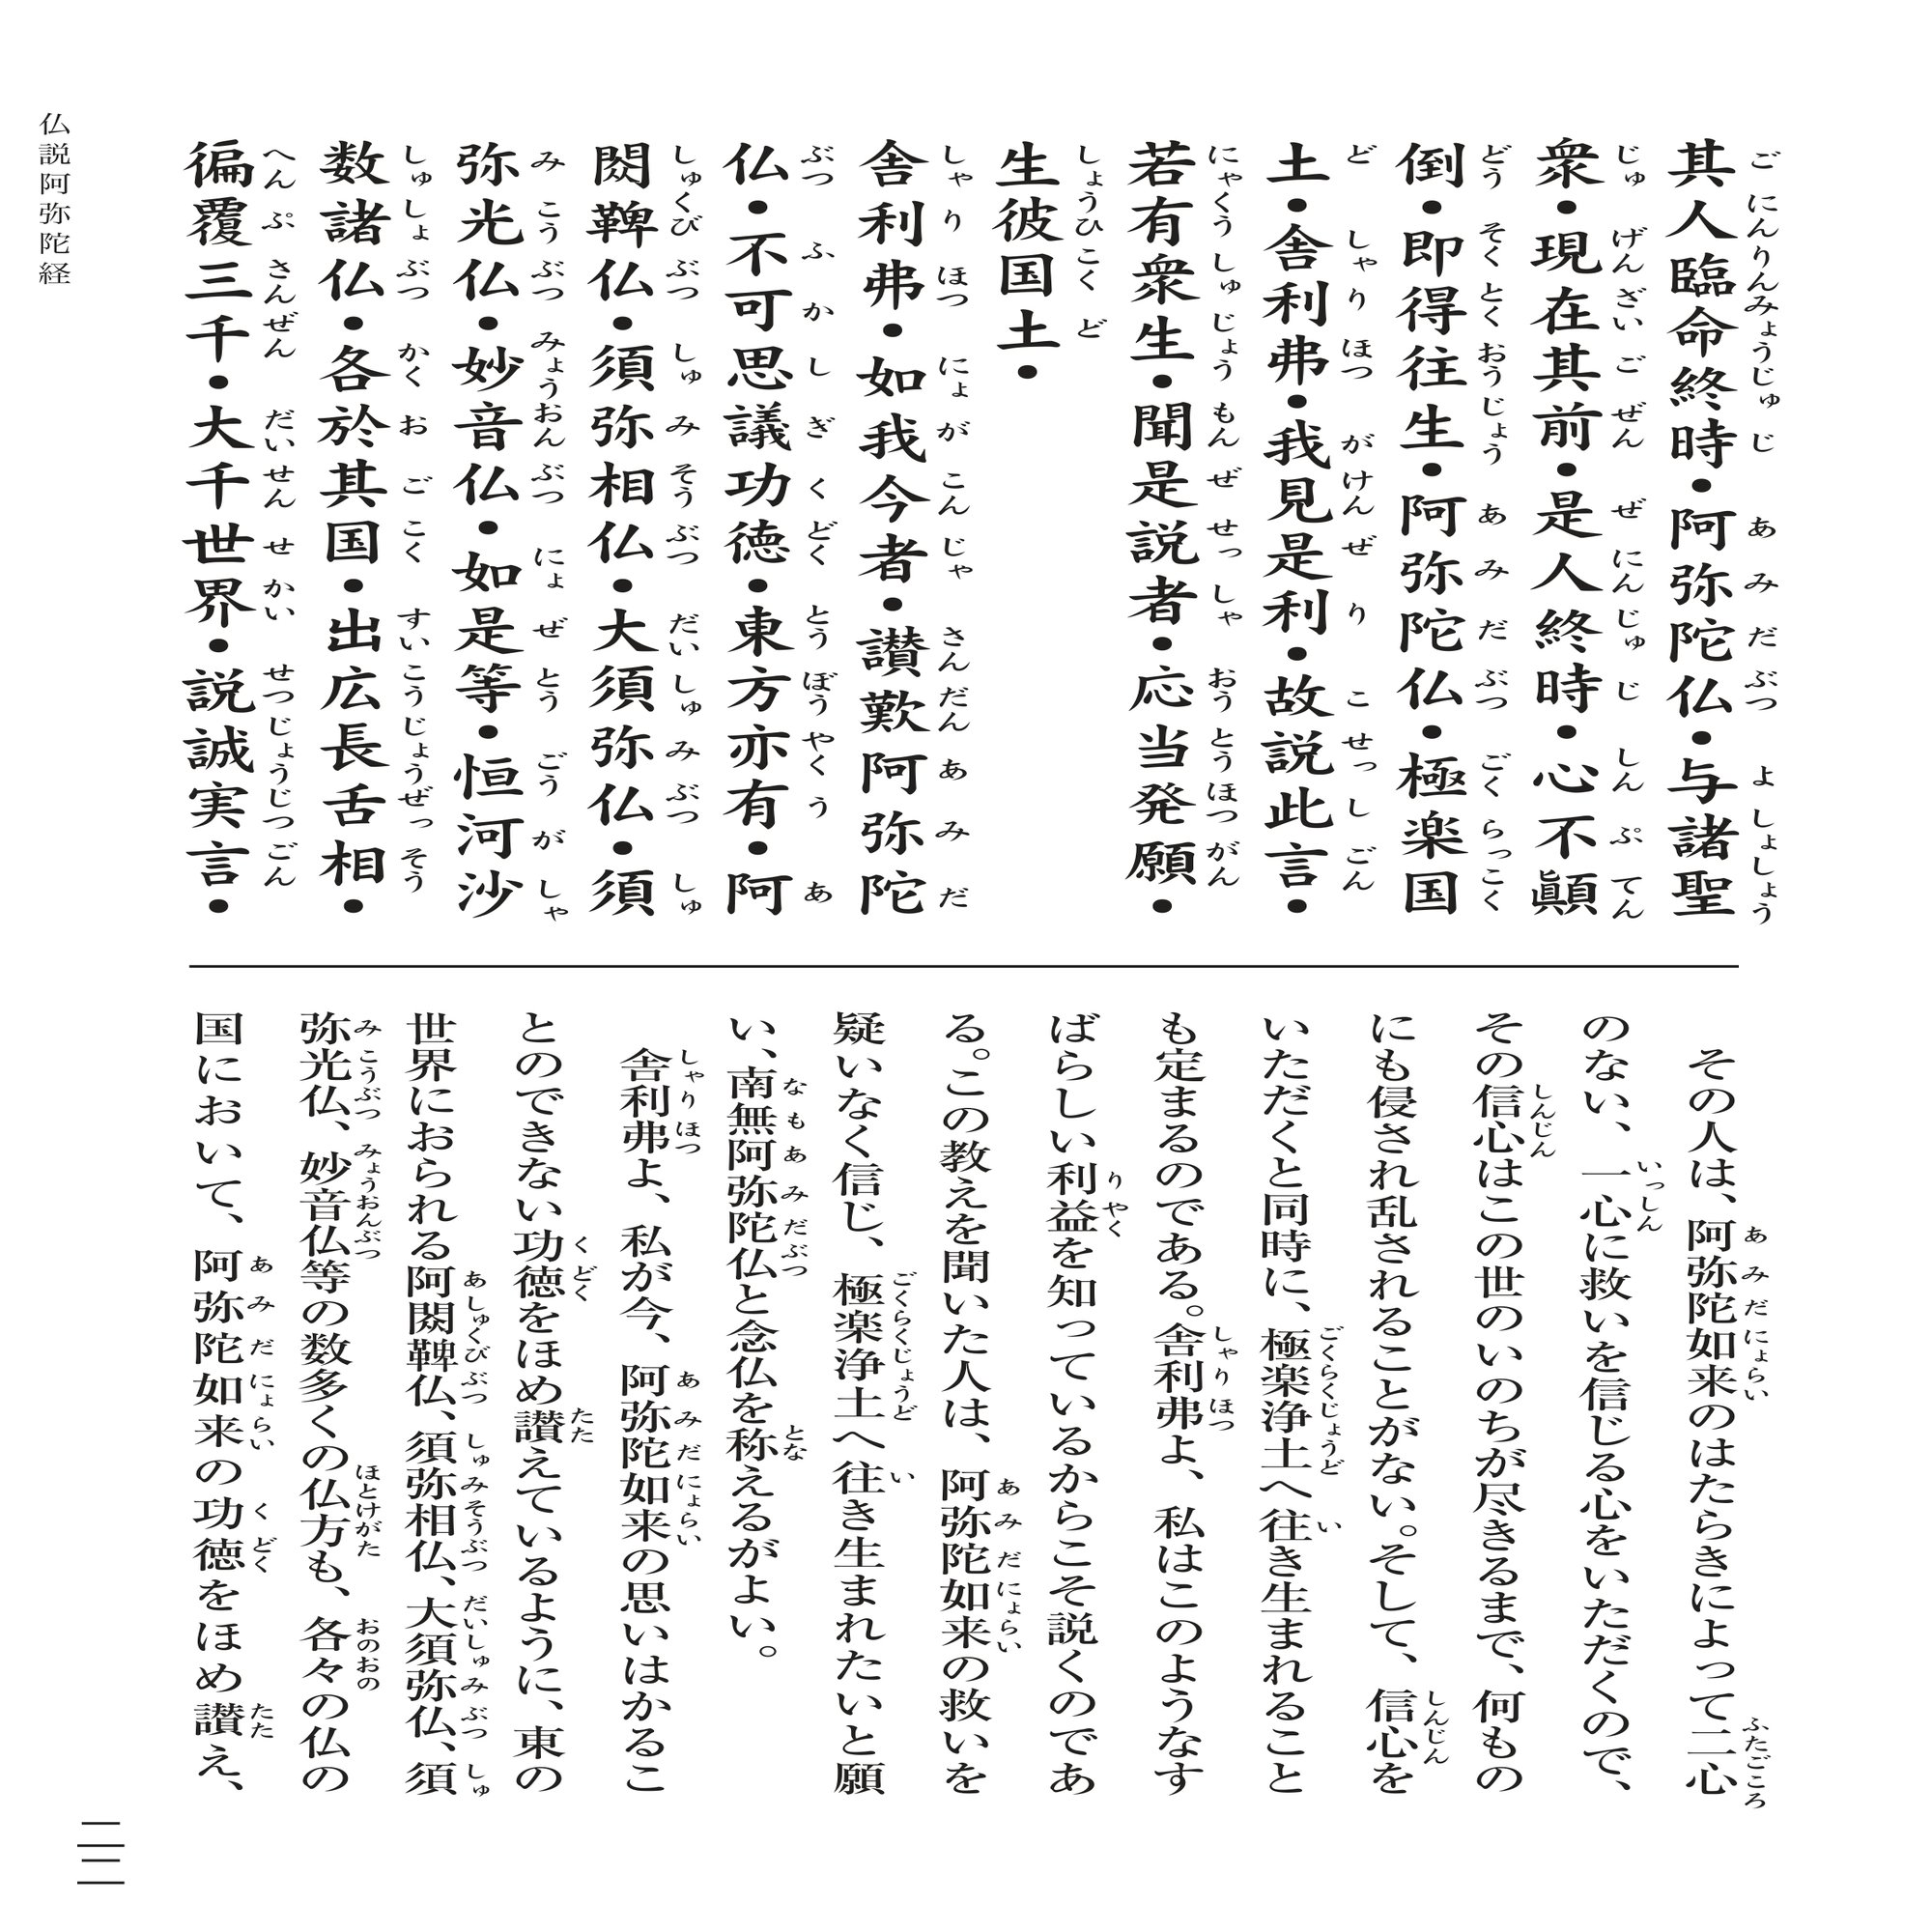 其人臨命終時・阿弥陀仏・与諸聖
衆・現在其前・是人終時・心不顚
倒・即得往生・阿弥陀仏・極楽国
土・舎利弗・我見是利・故説此言・
若有衆生・聞是説者・応当発願・
生彼国土・
舎利弗・如我今者・讃歎阿弥陀
仏・不可思議功徳・東方亦有・阿
閦鞞仏・須弥相仏・大須弥仏・須
弥光仏・妙音仏・如是等・恒河沙
数諸仏・各於其国・出広長舌相・
徧覆三千・大千世界・説誠実言・
その人は、阿弥陀如来のはたらきによって二心
のない、一心に救いを信じる心をいただくので、
その信心はこの世のいのちが尽きるまで、何もの
にも侵され乱されることがない。そして、信心を
いただくと同時に、極楽浄土へ往き生まれること
も定まるのである。舎利弗よ、私はこのようなす
ばらしい利益を知っているからこそ説くのであ
る。この教えを聞いた人は、阿弥陀如来の救いを
疑いなく信じ、極楽浄土へ往き生まれたいと願
い、南無阿弥陀仏と念仏を称えるがよい。
舎利弗よ、私が今、阿弥陀如来の思いはかるこ
とのできない功徳をほめ讃えているように、東の
世界におられる阿閦鞞仏、須弥相仏、大須弥仏、須
弥光仏、妙音仏等の数多くの仏方も、各々の仏の
国において、阿弥陀如来の功徳をほめ讃え、
仏説阿弥陀経
二二